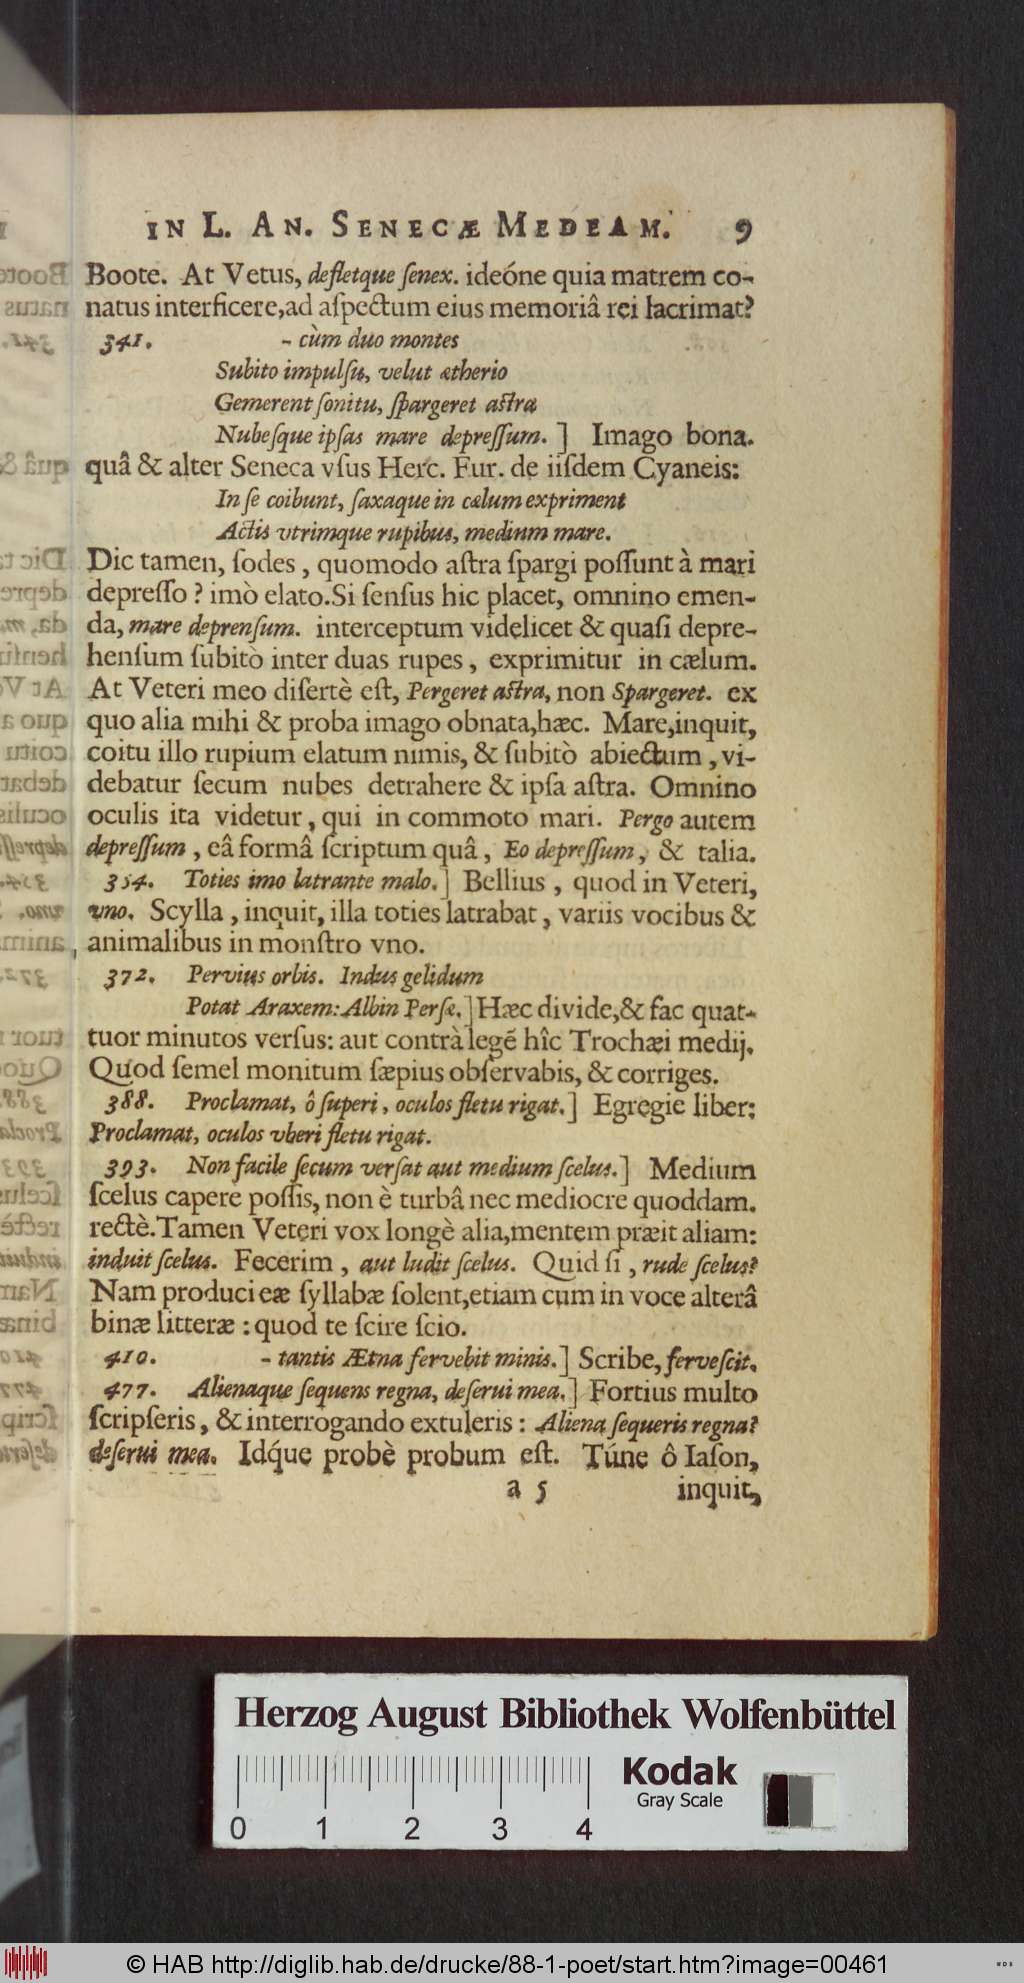 IN L. AN. SENECÆ MEDEAM. 9
Boote. At Vetus, defletque ſenex. ideóne quia matrem co-
natus interficere, ad aſpectum eius memoriâ rei lacrimat?
341. - cùm duo montes
Subito impulſu, velut ætherio
Gemerent ſonitu, ſpargeret aſtra
Nubeſque ipſas mare depreſſum.] Imago bona.
quâ & alter Seneca vſus Herc. Fur. de iiſdem Cyaneis:
In ſe coibunt, ſaxaque in cælum expriment
Actis vtrimque rupibus, medium mare.
Dic tamen, ſodes, quomodo aſtra ſpargi poſſunt à mari
depreſſo? imò elato. Si ſenſus hic placet, omnino emen-
da, mare deprenſum. interceptum videlicet & quaſi depre-
henſum ſubitò inter duas rupes, exprimitur in cælum.
At Veteri meo diſertè eſt, Pergeret aſtra, non Spargeret. ex
quo alia mihi & proba imago obnata, hæc. Mare, inquit,
coitu illo rupium elatum nimis, & ſubitò abiectum, vi-
debatur ſecum nubes detrahere & ipſa aſtra. Omnino
oculis ita videtur, qui in commoto mari. Pergo autem
depreſſum, eâ formâ ſcriptum quâ, Eo depreſſum, & talia.
354. Toties imo latrante malo.] Bellius, quod in Veteri,
vno. Scylla, inquit, illa toties latrabat, variis vocibus &
animalibus in monſtro vno.
372. Pervius orbis. Indus gelidum
Potat Araxem: Albin Perſæ.] Hæc divide, & fac quat-
tuor minutos verſus: aut contrà legẽ hîc Trochæi medij.
Quod ſemel monitum ſæpius obſervabis, & corriges.
388. Proclamat, ô ſuperi, oculos fletu rigat.] Egregie liber:
Proclamat, oculos vberi fletu rigat.
393. Non facile ſecum verſat aut medium ſcelus.] Medium
ſcelus capere poſſis, non è turbâ nec mediocre quoddam.
rectè. Tamen Veteri vox longè alia, mentem præit aliam:
induit ſcelus. Fecerim, aut ludit ſcelus. Quid ſi, rude ſcelus?
Nam produci eæ ſyllabæ ſolent, etiam cum in voce alterâ
binæ litteræ: quod te ſcire ſcio.
410. - tantis Ætna fervebit minis.] Scribe, ferveſcit.
477. Alienaque ſequens regna, deſerui mea.] Fortius multo
ſcripſeris, & interrogando extuleris: Aliena ſequeris regna?
deſerui mea. Idq́ue probè probum eſt. Túne ô Iaſon,
a 5 inquit,
Herzog August Bibliothek Wolfenbüttel
Kodak
Gray Scale
0 1 2 3 4
© HAB http://diglib.hab.de/drucke/88-1-poet/start.htm?image=00461